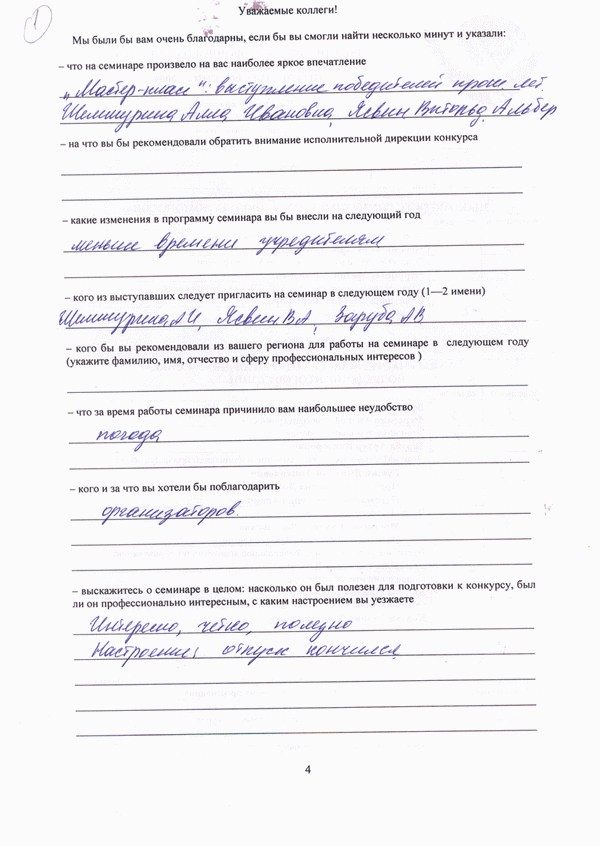 1
Уважаемые коллеги!
Мы были бы вам очень благодарны, если бы вы смогли найти несколько минут и указали:
– что на семинаре произвело на вас наиболее яркое впечатление
„Мастер-класс“: выступление победителей прош. лет
Шемшурина Алла Ивановна, Ясвин Витольд Альбер
– на что вы бы рекомендовали обратить внимание исполнительной дирекции конкурса
– какие изменения в программу семинара вы бы внесли на следующий год
меньше времени учредителям
– кого из выступавших следует пригласить на семинар в следующем году (1—2 имени)
Шемшурина АИ, Ясвин ВА, Заруба АВ
– кого бы вы рекомендовали из вашего региона для работы на семинаре в следующем году
(укажите фамилию, имя, отчество и сферу профессиональных интересов )
– что за время работы семинара причинило вам наибольшее неудобство
погода
– кого и за что вы хотели бы поблагодарить
организаторов
– выскажитесь о семинаре в целом: насколько он был полезен для подготовки к конкурсу, был
ли он профессионально интересным, с каким настроением вы уезжаете
Интересно, чётко, полезно
Настроение: отпуск кончился
4